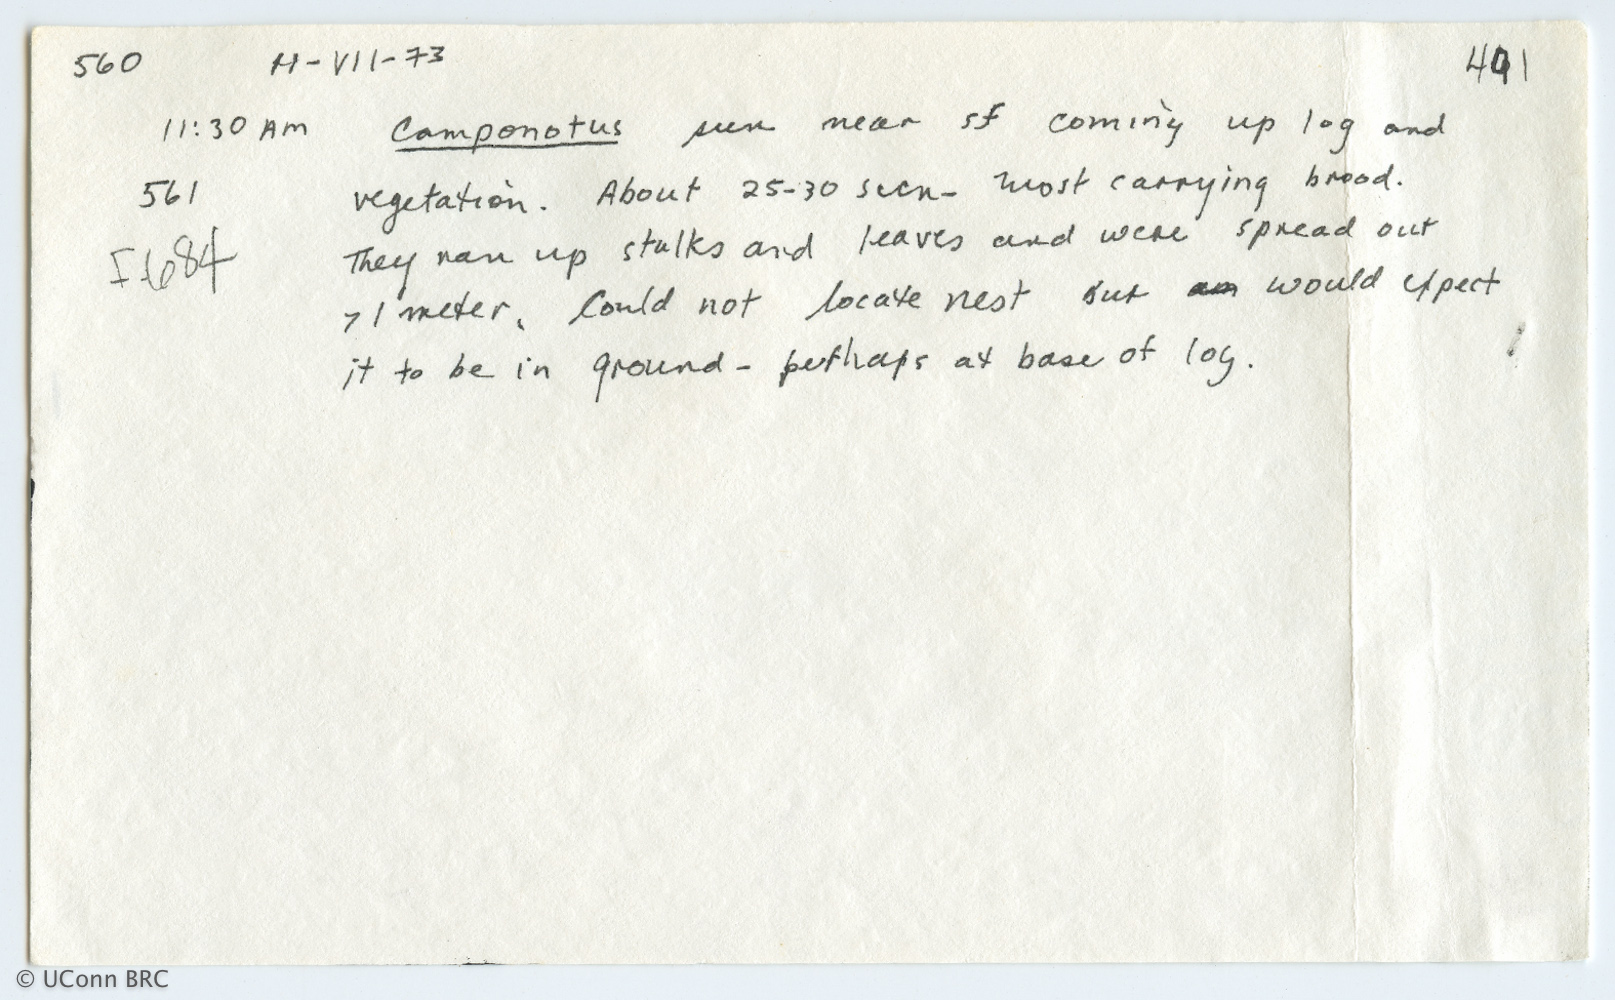 560 11-VII-73 401
11:30 AM Camponotus seen near sf coming up log and
561 vegetation. About 25-30 seen- most carrying brood.
They ran up stalks and leaves and were spread out
I 684
>1 meter. Could not locate nest but would expect
it to be in ground - perhaps at base of log.
© UConn BRC